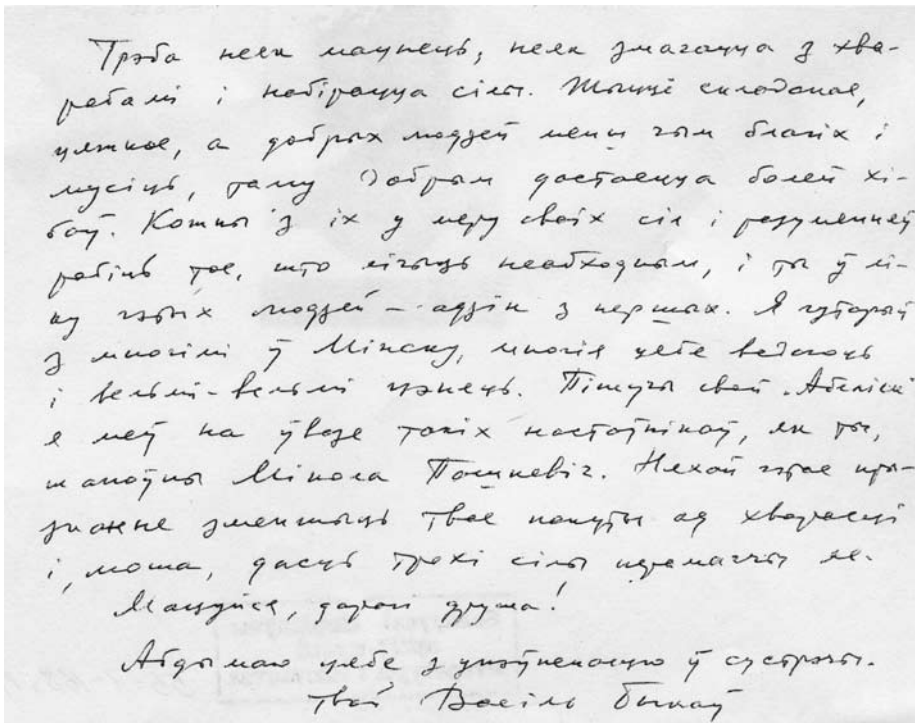 Трэба неяк мацнець, неяк змагацца з хва-
робамі і набірацца сілы. Жыццё складанае,
цяжкое, а добрых людзей менш чым благіх і
мусіць, таму добрым дастаецца болей хі-
баў. Кожны з іх у меру сваіх сіл і разуменняў
робіць тое, што лічыць неабходным, і ты ў лі-
ку гэтых людзей – адзін з першых. Я гутарыў
з многімі ў Мінску, многія цябе ведаюць
і вельмі-вельмі цэняць. Пішучы свой „Абеліск“
я меў на ўвазе такіх настаўнікаў, як ты,
шаноўны Мікола Пашкевіч. Няхай гэтае пры-
знанне зменшыць твае пакуты ад хваробы
і, можа, дасць трохі сілы перамагчы яе.
Мацуйся, дарагі дружа!
Абдымаю цябе з упэўненасцю ў сустрэчы.
Твой Васіль Быкаў